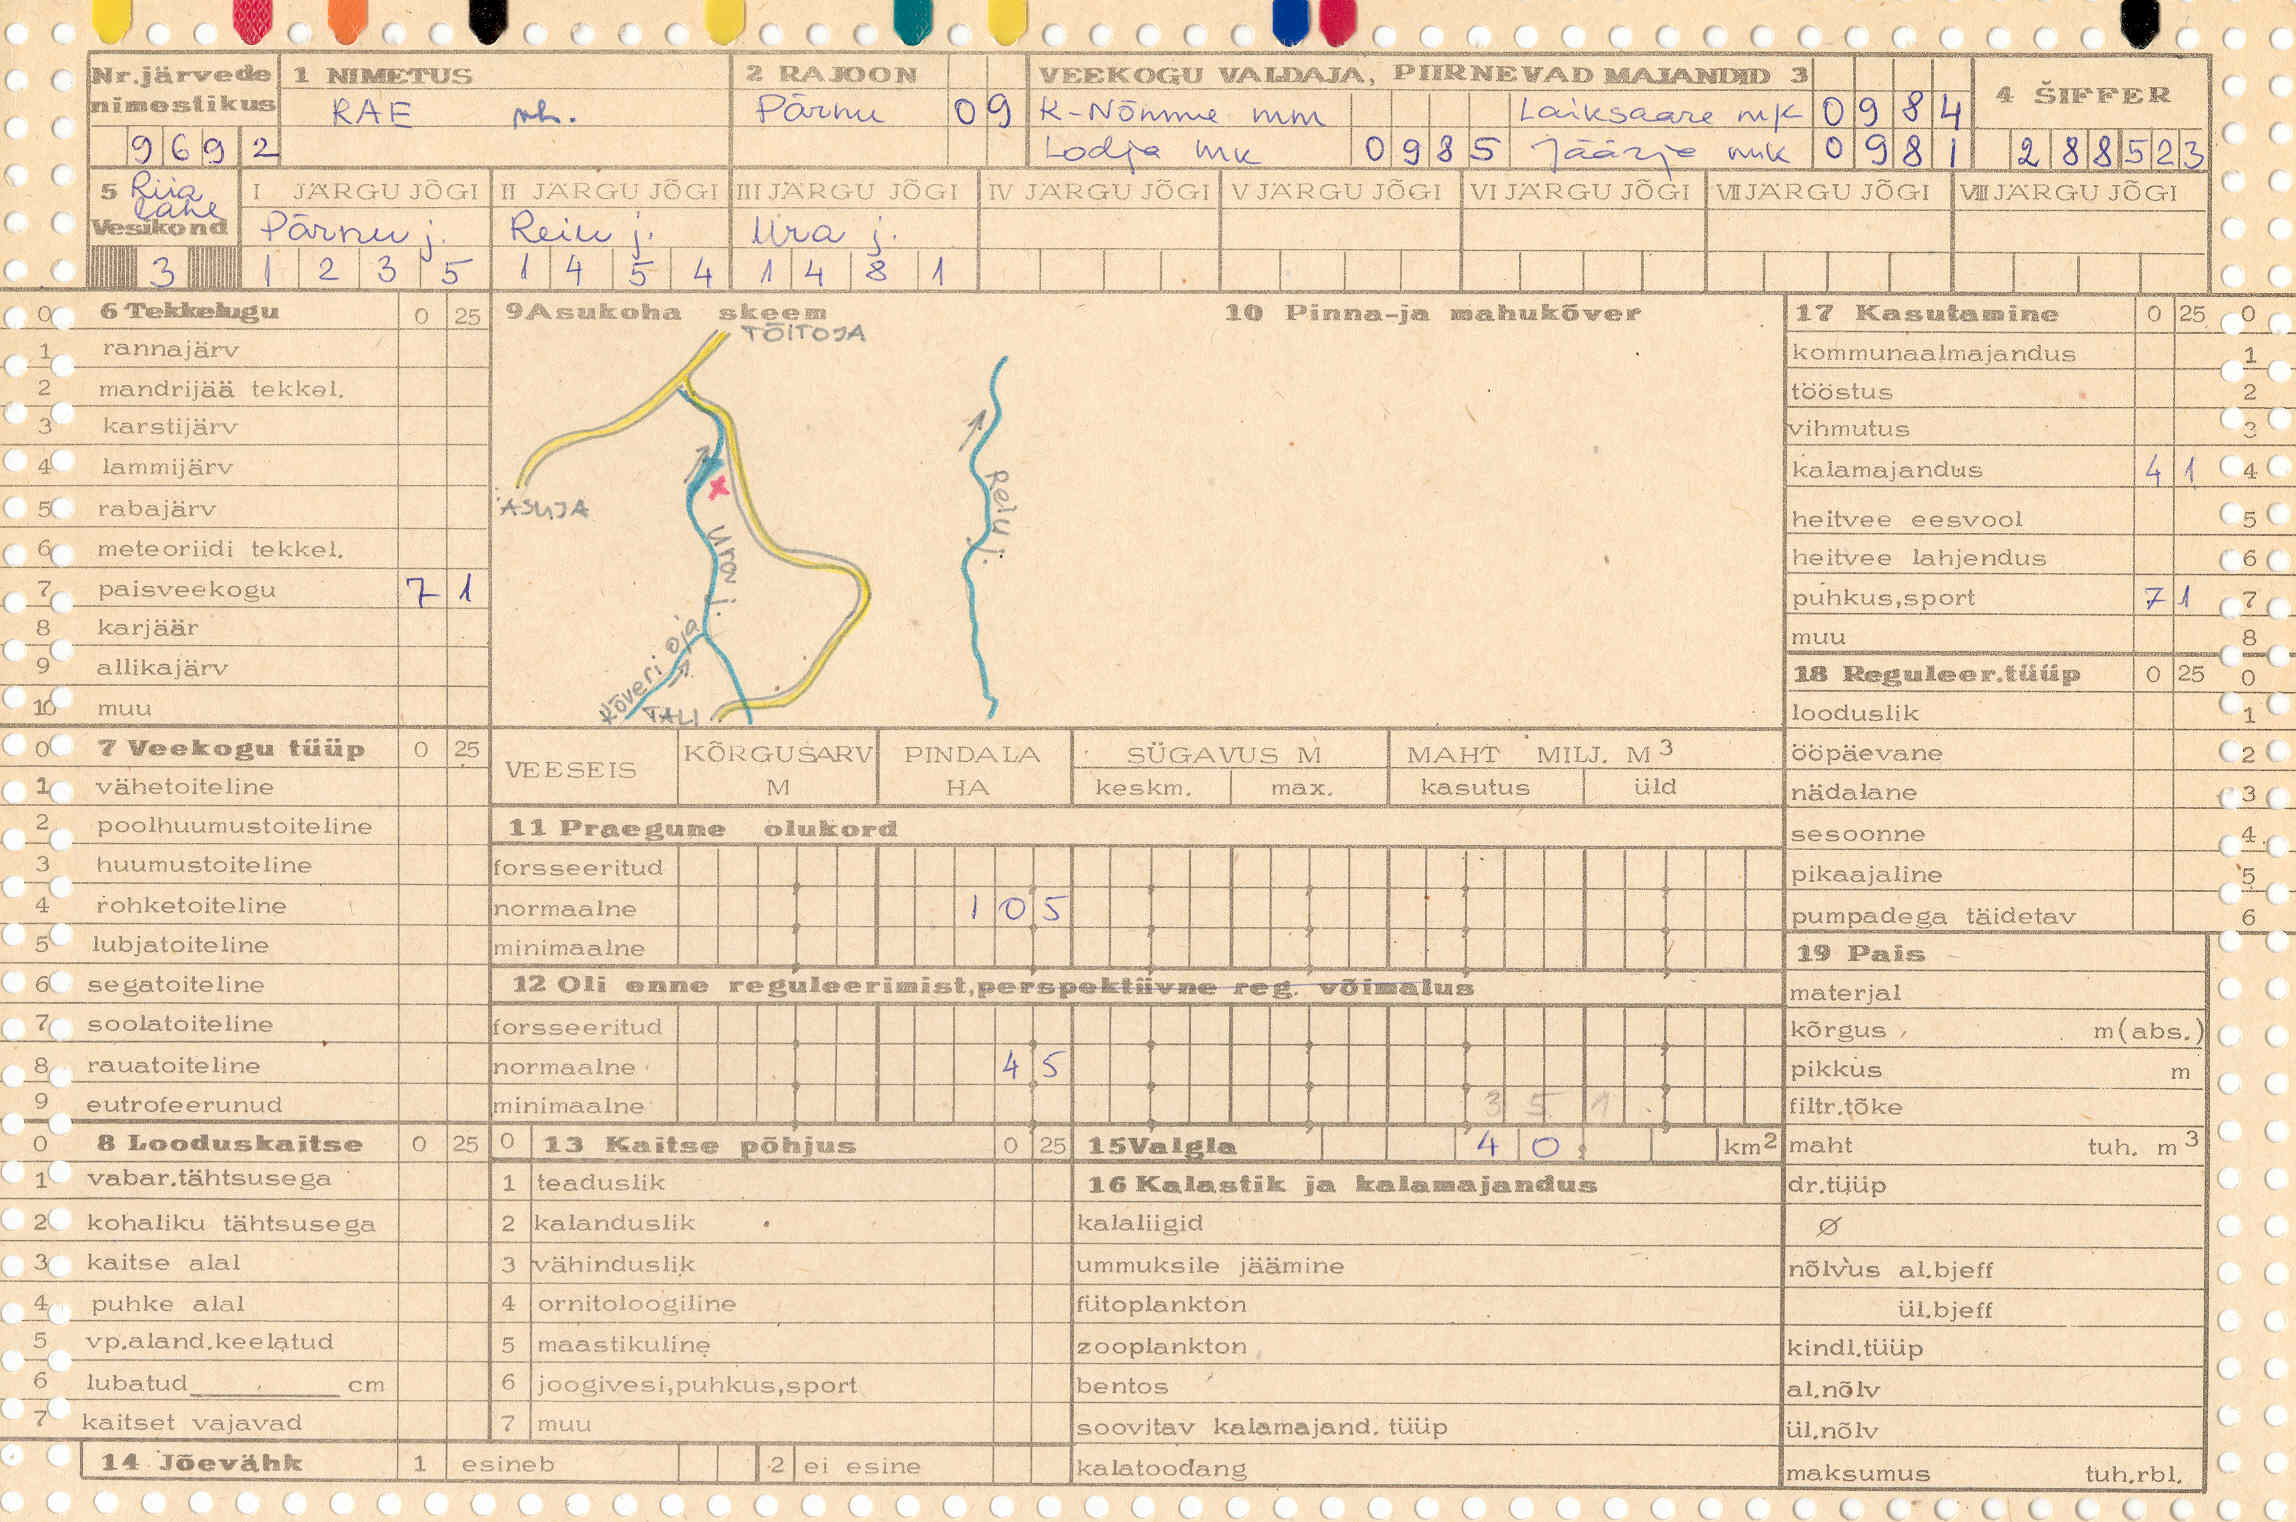 Nr.järvede nimestikus
9692
1 NIMETUS
RAE vh.
2 RAJOON
Pärnu 09
VEEKOGU VALDAJA, PIIRNEVAD MAJANDID 3
K-Nõmme mm Laiksaare mk 0984
Lodja mk 0985 Jäärje mk 0981
4 ŠIFFER
288523
5 Riia lahe Vesikond
3
I JÄRGU JÕGI II JÄRGU JÕGI III JÄRGU JÕGI IV JÄRGU JÕGI V JÄRGU JÕGI VI JÄRGU JÕGI VII JÄRGU JÕGI VIII JÄRGU JÕGI
Pärnu j. Reiu j. Ura j.
1235 1454 1481
0 6 Tekkelugu 0 25
1 rannajärv
2 mandrijää tekkel.
3 karstijärv
4 lammijärv
5 rabajärv
6 meteoriidi tekkel.
7 paisveekogu 7 1
8 karjäär
9 allikajärv
10 muu
0 7 Veekogu tüüp 0 25
1 vähetoiteline
2 poolhuumustoiteline
3 huumustoiteline
4 rohketoiteline
5 lubjatoiteline
6 segatoiteline
7 soolatoiteline
8 rauatoiteline
9 eutrofeerunud
0 8 Looduskaitse 0 25
1 vabar.tähtsusega
2 kohaliku tähtsusega
3 kaitse alal
4 puhke alal
5 vp.aland.keelatud
6 lubatud cm
7 kaitset vajavad
14 Jõevähk 1 esineb 2 ei esine
9 Asukoha skeem
TÕITOJA
ASUJA
Ura j.
Kõveri oja
TALI
Reiu j.
10 Pinna-ja mahukõver
VEESEIS KÕRGUSARV M PINDALA HA SÜGAVUS M keskm. max. MAHT MILJ. M3 kasutus üld
11 Praegune olukord
forsseeritud
normaalne 105
minimaalne
12 Oli enne reguleerimist,perspektiivne reg. võimalus
forsseeritud
normaalne 45
minimaalne 351
0 13 Kaitse põhjus 0 25
1 teaduslik
2 kalanduslik
3 vähinduslik
4 ornitoloogiline
5 maastikuline
6 joogivesi,puhkus,sport
7 muu
15 Valgla 40 km2
16 Kalastik ja kalamajandus
kalaliigid
ummuksile jäämine
fütoplankton
zooplankton
bentos
soovitav kalamajand. tüüp
kalatoodang
17 Kasutamine 0 25 0
kommunaalmajandus 1
tööstus 2
vihmutus 3
kalamajandus 4 1 4
heitvee eesvool 5
heitvee lahjendus 6
puhkus,sport 7 1 7
muu 8
18 Reguleer.tüüp 0 25 0
looduslik 1
ööpäevane 2
nädalane 3
sesoonne 4
pikaajaline 5
pumpadega täidetav 6
19 Pais
materjal
kõrgus m(abs.)
pikkus m
filtr.tõke
maht tuh. m3
dr.tüüp
Ø
nõlvus al.bjeff
ül.bjeff
kindl.tüüp
al.nõlv
ül.nõlv
maksumus tuh.rbl.